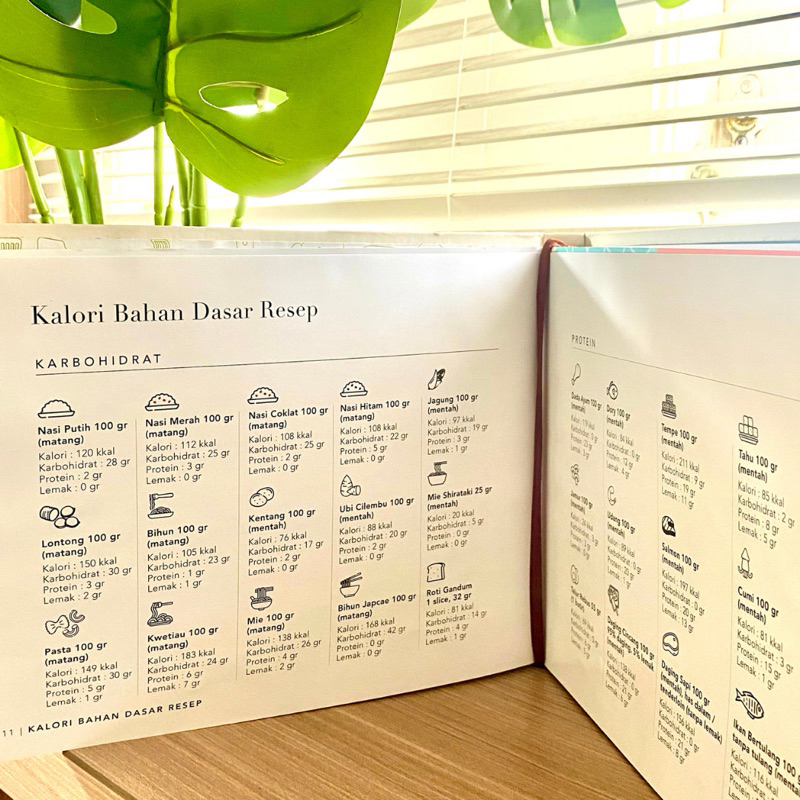 Kalori Bahan Dasar Resep
KARBOHIDRAT
Nasi Putih 100 gr
(matang)
Kalori : 120 kkal
Karbohidrat : 28 gr
Protein : 2 gr
Lemak : 0 gr
Nasi Merah 100 gr
(matang)
Kalori : 112 kkal
Karbohidrat : 25 gr
Protein : 3 gr
Lemak : 0 gr
Nasi Coklat 100 gr
(matang)
Kalori : 108 kkal
Karbohidrat : 25 gr
Protein : 2 gr
Lemak : 0 gr
Nasi Hitam 100 gr
(matang)
Kalori : 108 kkal
Karbohidrat : 22 gr
Protein : 5 gr
Lemak : 0 gr
Jagung 100 gr
(mentah)
Kalori : 97 kkal
Karbohidrat : 19 gr
Protein : 3 gr
Lemak : 1 gr
Lontong 100 gr
(matang)
Kalori : 150 kkal
Karbohidrat : 30 gr
Protein : 3 gr
Lemak : 2 gr
Bihun 100 gr
(matang)
Kalori : 105 kkal
Karbohidrat : 23 gr
Protein : 1 gr
Lemak : 1 gr
Kentang 100 gr
(mentah)
Kalori : 76 kkal
Karbohidrat : 17 gr
Protein : 2 gr
Lemak : 0 gr
Ubi Cilembu 100 gr
(mentah)
Kalori : 88 kkal
Karbohidrat : 20 gr
Protein : 2 gr
Lemak : 0 gr
Mie Shirataki 25 gr
(mentah)
Kalori : 20 kkal
Karbohidrat : 5 gr
Protein : 0 gr
Lemak : 0 gr
Pasta 100 gr
(matang)
Kalori : 149 kkal
Karbohidrat : 30 gr
Protein : 5 gr
Lemak : 1 gr
Kwetiau 100 gr
(matang)
Kalori : 183 kkal
Karbohidrat : 24 gr
Protein : 6 gr
Lemak : 7 gr
Mie 100 gr
(matang)
Kalori : 138 kkal
Karbohidrat : 26 gr
Protein : 4 gr
Lemak : 2 gr
Bihun Japcae 100 gr
(matang)
Kalori : 168 kkal
Karbohidrat : 42 gr
Protein : 0 gr
Lemak : 0 gr
Roti Gandum
1 slice, 32 gr
Kalori : 81 kkal
Karbohidrat : 14 gr
Protein : 4 gr
Lemak : 1 gr
11 | KALORI BAHAN DASAR RESEP
PROTEIN
Dada Ayam 100 gr
(mentah)
Dory 100 gr
(mentah)
Tempe 100 gr
(mentah)
Kalori : 211 kkal
Karbohidrat : 9 gr
Protein : 19 gr
Lemak : 11 gr
Tahu 100 gr
(mentah)
Kalori : 85 kkal
Karbohidrat : 2 gr
Protein : 8 gr
Lemak : 5 gr
Jamur 100 gr
(mentah)
Udang 100 gr
(mentah)
Salmon 100 gr
(mentah)
Kalori : 197 kkal
Karbohidrat : 0 gr
Protein : 20 gr
Lemak : 13 gr
Cumi 100 gr
(mentah)
Kalori : 81 kkal
Karbohidrat : 3 gr
Protein : 15 gr
Lemak : 1 gr
Daging Cincang 100 gr
Daging Sapi 100 gr
(mentah), has dalam /
tenderloin (tanpa lemak)
Kalori : 156 kkal
Karbohidrat : 0 gr
Protein : 21 gr
Lemak : 8 gr
Ikan Bertulang 100
tanpa tulang
Kalori : 116 kkal